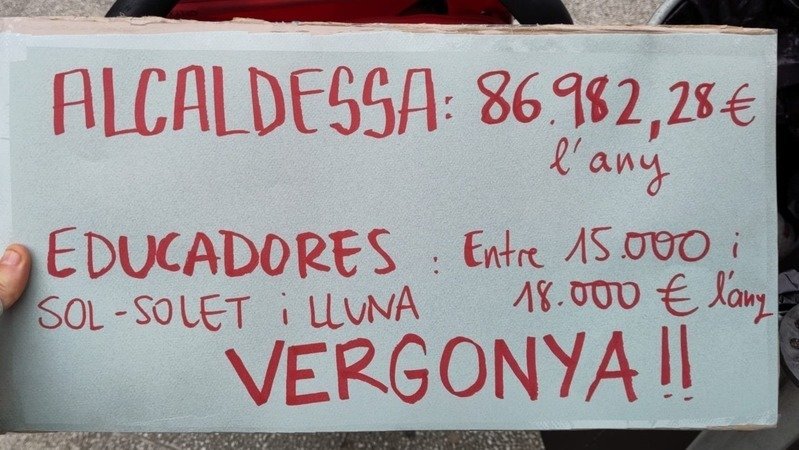 ALCALDESSA: 86.982,28 €
l'any
EDUCADORES : Entre 15.000 i
SOL-SOLET i LLUNA 18.000 € l'any
VERGONYA!!